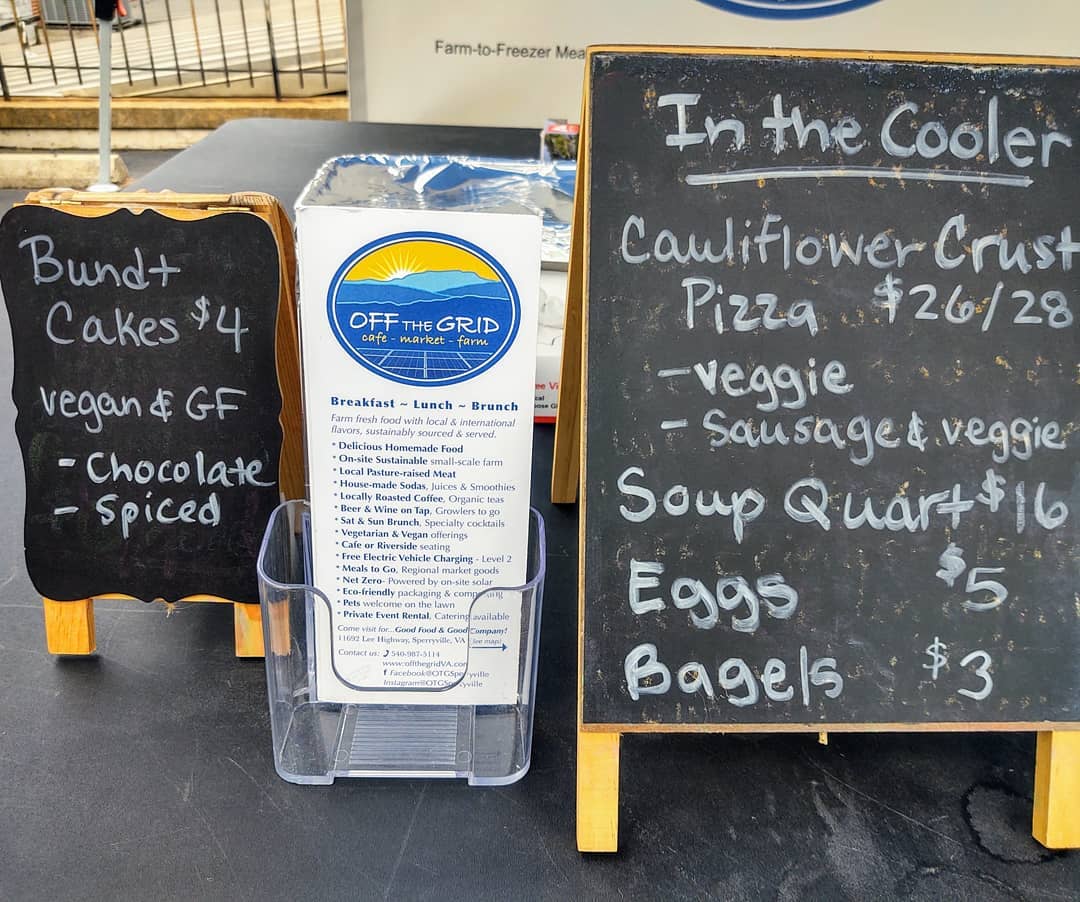 Farm-to-Freezer Mea
Bundt
Cakes $4
vegan & GF
- Chocolate
- Spiced
OFF THE GRID
cafe - market - farm
Breakfast ~ Lunch ~ Brunch
Farm fresh food with local & international
flavors, sustainably sourced & served.
* Delicious Homemade Food
* On-site Sustainable small-scale farm
* Local Pasture-raised Meat
* House-made Sodas, Juices & Smoothies
* Locally Roasted Coffee, Organic teas
* Beer & Wine on Tap, Growlers to go
* Sat & Sun Brunch, Specialty cocktails
* Vegetarian & Vegan offerings
* Cafe or Riverside seating
* Free Electric Vehicle Charging - Level 2
* Meals to Go, Regional market goods
* Net Zero- Powered by on-site solar
* Eco-friendly packaging &
* Pets welcome on the lawn
* Private Event Rental, Catering available
Come visit for... Good Food & Good Company!
11692 Lee Highway, Sperryville, VA (see map)
Contact us: 540-987-5114
www.offthegridVA.com
Facebook@OTGSperryville
Instagram@OTGSperryville
In the Cooler
Cauliflower Crust
Pizza $26/28
- veggie
- Sausage & veggie
Soup Quart $16
Eggs $5
Bagels $3